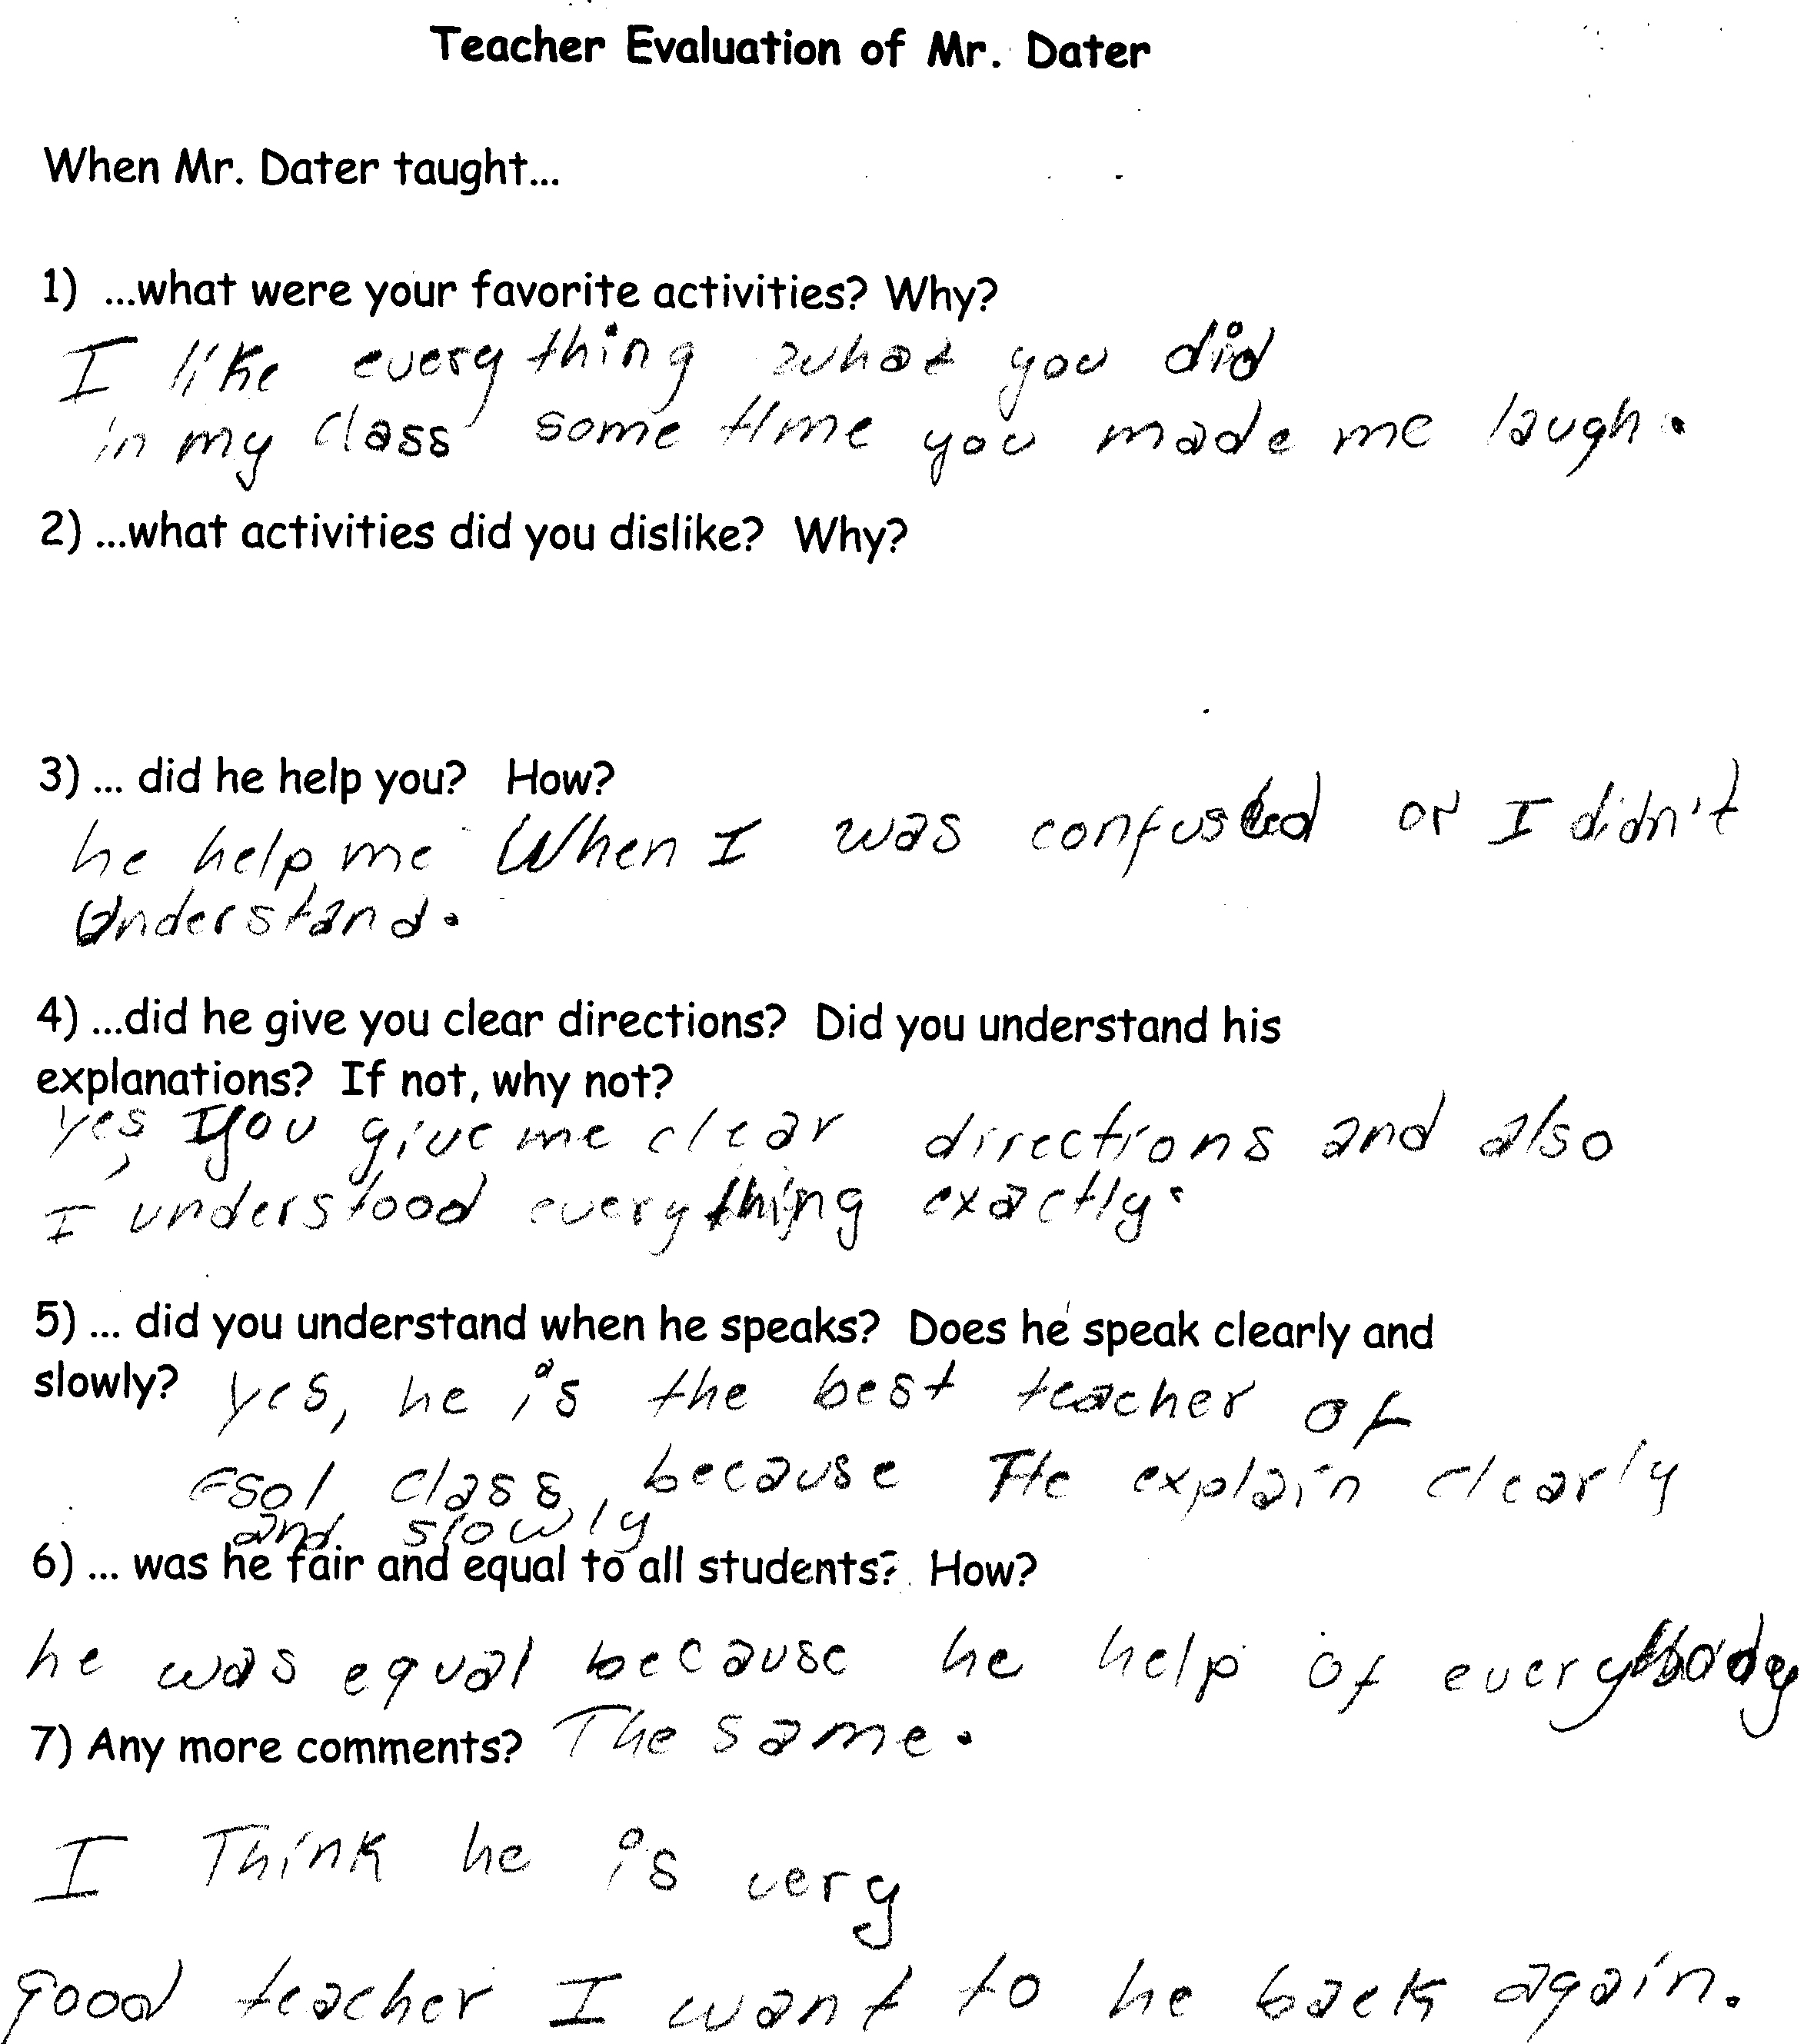 Teacher Evaluation of Mr. Dater
When Mr. Dater taught...
1) ...what were your favorite activities? Why?
I like everything what you did
in my class some time you made me laugh.
2) ...what activities did you dislike? Why?
3) ... did he help you? How?
he help me When I was confused or I didn't
Understand.
4) ...did he give you clear directions? Did you understand his
explanations? If not, why not?
yes, you give me clear directions and also
I understood everything exactly.
5) ... did you understand when he speaks? Does he speak clearly and
slowly? yes, he is the best teacher of
esol class, because He explain clearly
and slowly
6) ... was he fair and equal to all students? How?
he was equal because he help of everybody
7) Any more comments? The same.
I Think he is very
good teacher I want to he back again.